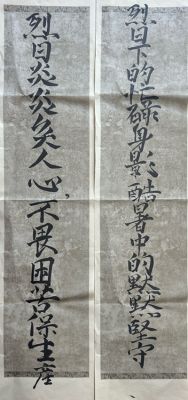 烈日下的忙碌身影酷暑中的默默堅守
烈日炎炎炙人心，不畏困苦保生產